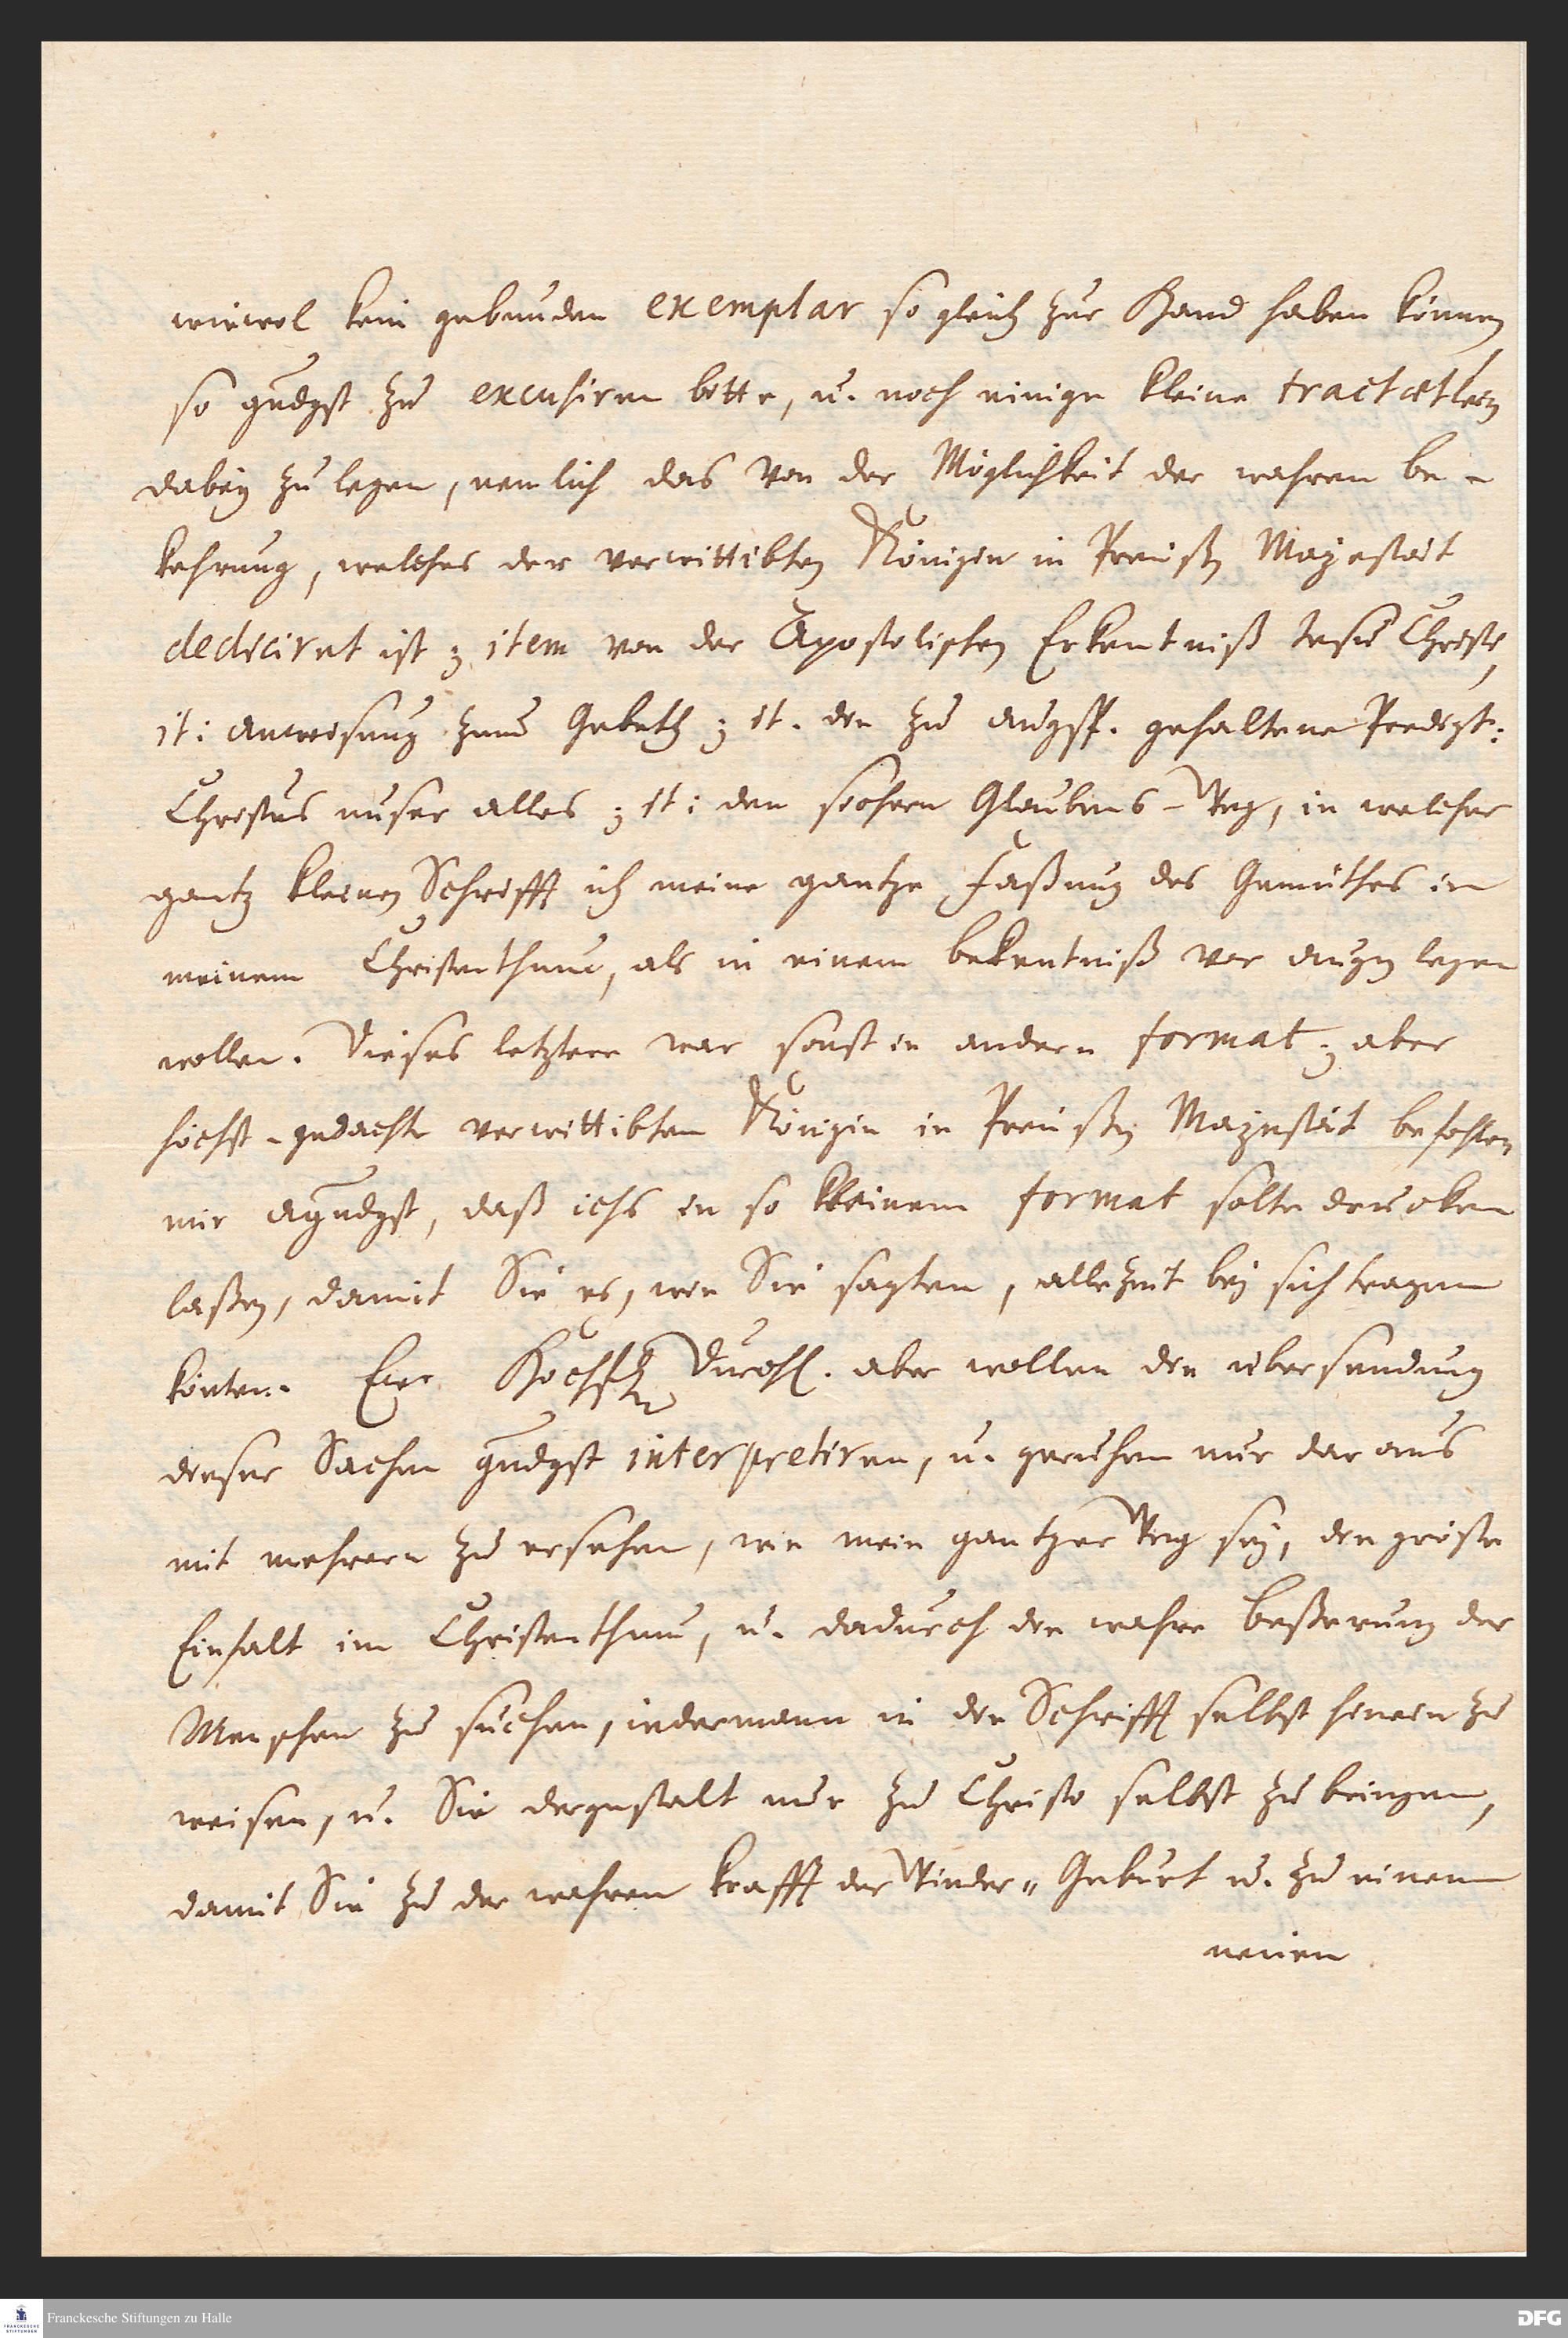 wiewol kein gebunden exemplar so gleich zur Hand haben können
so gndgst zu excusiren bitte, u. noch einige kleine tractætlein
dabey zu legen, nemlich das von der Möglichkeit der wahren be-
kehrung, welches der verwittibten Königin in Preußen Majestät
dediciret ist; item von der Apostolischen Erkentniß Jesu Christi,
it: anweisung zum Gebeth; it. die zu augsp. gehaltene Predigt:
Christus unser alles; it: den sichern Glaubens-Weg, in welcher
gantz kleinen Schrifft ich meine gantze Faßung des Gemüthes im
meinem Christenthum, als in einem bekentniß vor augen legen
wollen. Dieses letztere war sonst in andern format; aber
höchst-gedachte verwittibten Königin in Preußen Majestät befohlen
mir agndgst, daß ichs in so kleinem format solte drucken
laßen, damit Sie es, wie Sie sagten, allezeit bey sich tragen
könten. Ewr Hochfl Durchl. aber wollen die übersendung
dieser Sachen gndgst interpretiren, u. geruhen nur daraus
mit mehrern zu ersehen, wie mein gantzer Weg sey, die gröste
Einfalt im Christenthum, u. dadurch die wahre beßerung der
Menschen zu suchen, iederman in die Schrifft selbst hinein zu
weisen, u. Sie dergestalt nur zu Christo selbst zu bringen,
damit Sie zu der wahren krafft der Wieder-Geburt u. zu einem
neuen
Franckesche Stiftungen zu Halle
FRANCKESCHE STIFTUNGEN
DFG